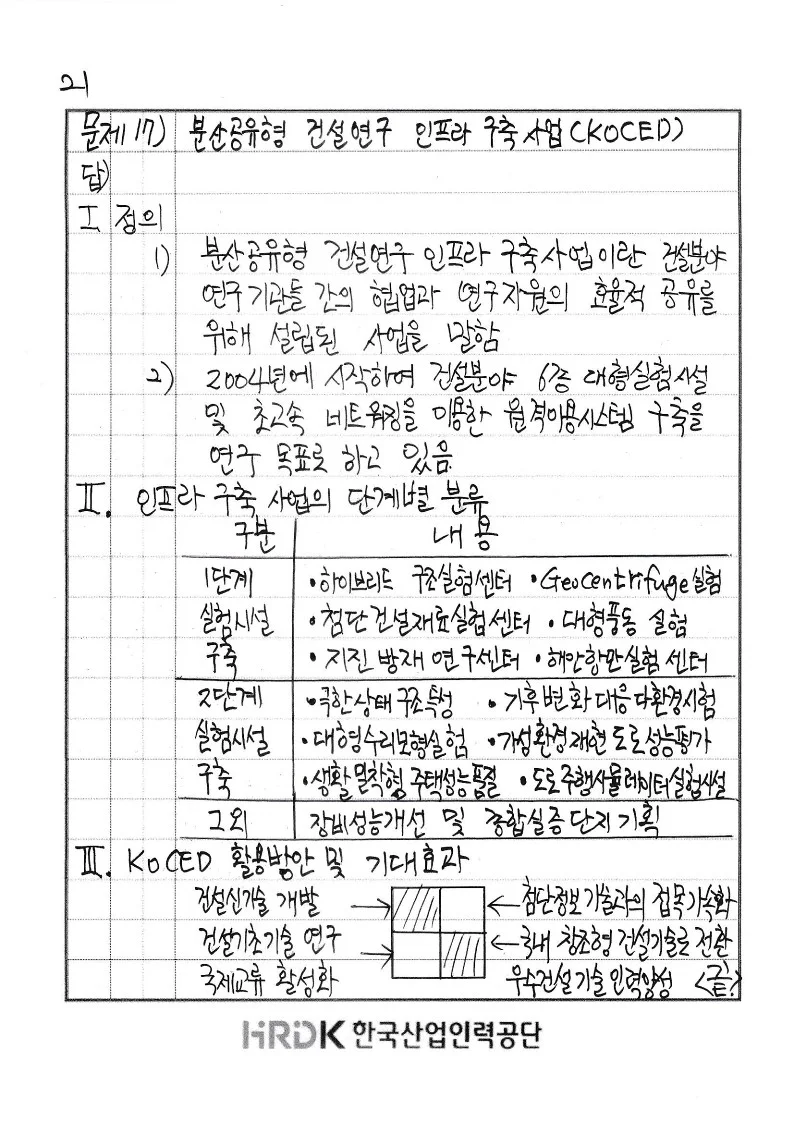 21
문제 17) 분산공유형 건설연구 인프라 구축사업(KOCED)
답)
I. 정의
1) 분산공유형 건설연구 인프라 구축사업이란 건설분야
연구기관들 간의 협업과 연구자원의 효율적 공유를
위해 설립된 사업을 말함
2) 2004년에 시작하여 건설분야 6종 대형실험시설
및 초고속 네트워킹을 이용한 원격이용시스템 구축을
연구 목표로 하고 있음
II. 인프라 구축 사업의 단계별 분류
구분 내용
1단계 •하이브리드 구조실험센터 •Geocentrifuge실험
실험시설 •첨단건설재료실험센터 •대형풍동 실험
구축 •지진 방재 연구센터 •해안항만실험 센터
2단계 •극한상태구조특성 •기후변화대응다환경시험
실험시설 •대형수리모형실험 •가성환경재현도로성능평가
구축 •생활밀착형 주택성능품질 •도로주행시뮬레이터실험시설
그외 장비성능개선 및 종합실증단지 기획
III. KOCED 활용방안 및 기대효과
건설신기술 개발 → ← 첨단정보기술과의 접목가속화
건설기초기술 연구 → ← 국내 창조형 건설기술로 전환
국제교류 활성화 우수건설기술인력양성 <끝>
HRDK 한국산업인력공단